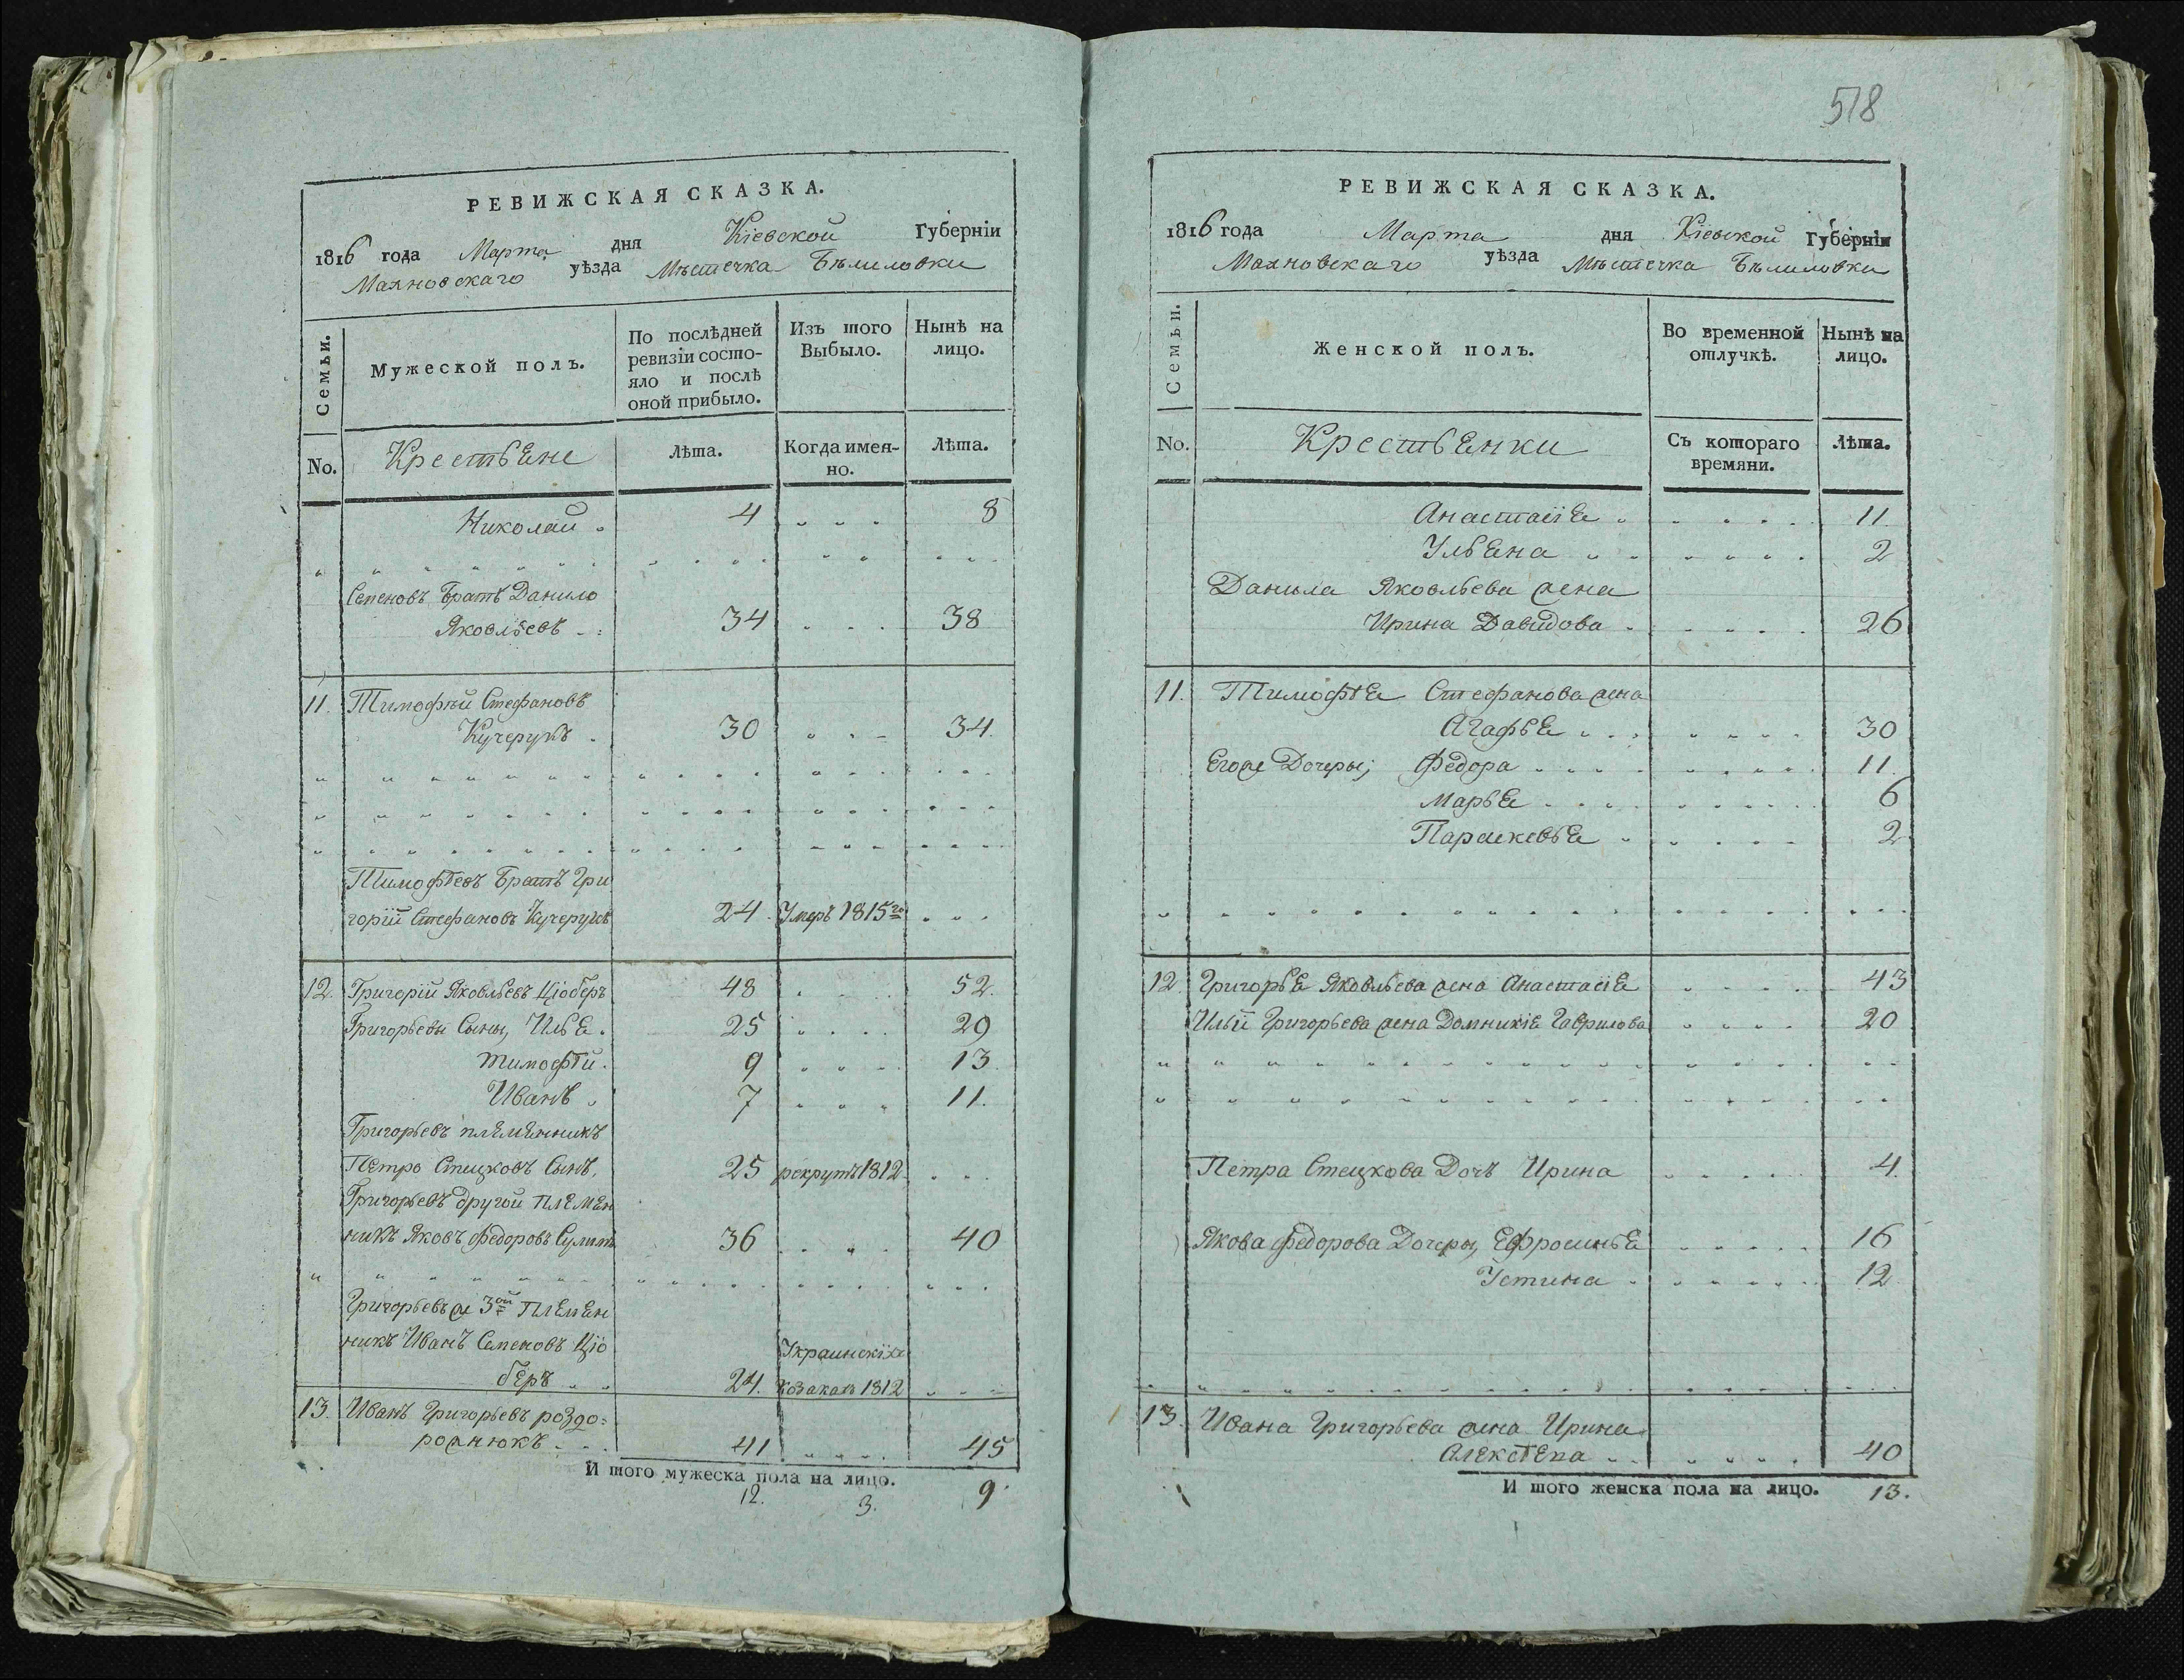 518
РЕВИЖСКАЯ СКАЗКА.
1816 года Марта дня Кіевской Губерніи
Махновскаго уѣзда Мѣстечка Бѣлиловки
Семьи.
Мужеской полъ.
По послѣдней ревизіи состо-
яло и послѣ оной прибыло.
Изъ того Выбыло.
Нынѣ на лицо.
No.
Крестьяне
Лѣта.
Когда имен-
но.
Лѣта.
Николай 4 8
Семеновъ Братъ Данило
Яковлевъ 34 38
11. Тимофѣй Стефановъ
Кучерукъ 30 34.
Тимофѣевъ Братъ Гри
горій Стефановъ Кучерукъ 24. Умеръ 1815го
12. Григорій Яковлевъ Цюберъ 48 52.
Григорьевы Сыны, Илья. 25 29
Тимофѣй. 9 13.
Иванъ 7 11.
Григорьевъ племянникъ
Петро Стецковъ Сынъ, 25 рекрутъ 1812
Григорьевъ другой племян
никъ Яковъ Федоровъ 36 40
Григорьевъ же 3ой племян
никъ Иванъ Семеновъ Цю
беръ 24. 1812
13. Иванъ Григорьевъ роздо=
рожнюкъ 41 45
И того мужеска пола на лицо.
12. 3. 9.
РЕВИЖСКАЯ СКАЗКА.
1816 года Марта дня Кіевской Губерніи
Махновскаго уѣзда Мѣстечка Бѣлиловки
Семьи.
Женской полъ.
Во временной отлучкѣ.
Нынѣ на лицо.
No.
Крестьянки
Съ котораго времяни.
Лѣта.
Анастасія 11.
Ульяна 2
Данила Яковлева жена
Ирина Давидова 26
11. Тимофѣя Стефанова жена
Агафья 30
Его же Дочеры; Федора 11.
Марья 6
Параскевья 2
12. Григорья Яковлева жена Анастасія 43
Ильи Григорьева жена Домникія Гаврилова 20
Петра Стецкова Дочъ Ирина 4.
Якова Федорова Дочеры, Ефросинья 16
Устина 12
13. Ивана Григорьева жена Ирина
40
И того женска пола на лицо. 13.